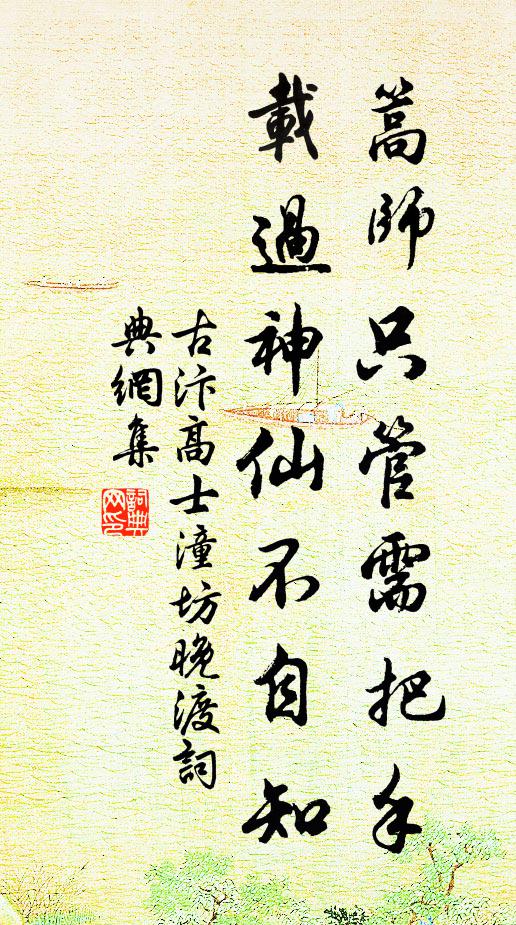 蒿師只管需把手
載過神仙不自知
古汴高士潼坊晚渡詞
典網集
詞典網印